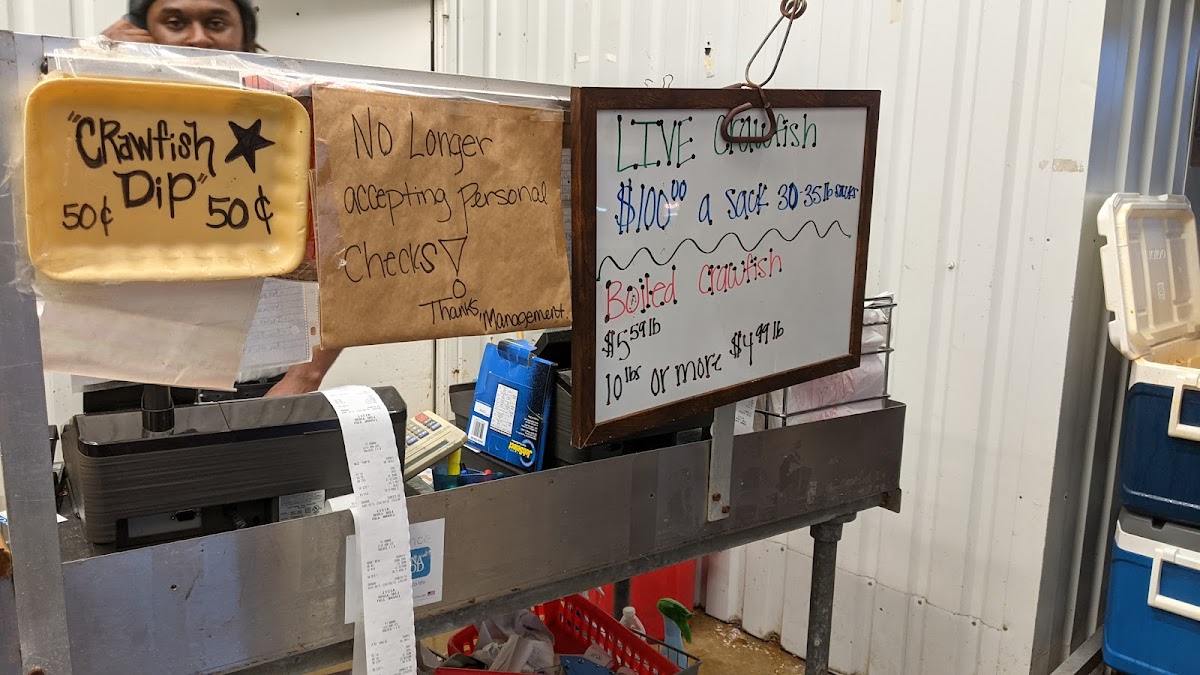 "Crawfish
Dip"
50¢ 50¢
No Longer
accepting Personal
Checks!
Thanks, Management.
LIVE Crawfish
$100.00 a sack 30-35 lb sacks
Boiled crawfish
$5.59 lb
10 lbs or more $4.99 lb